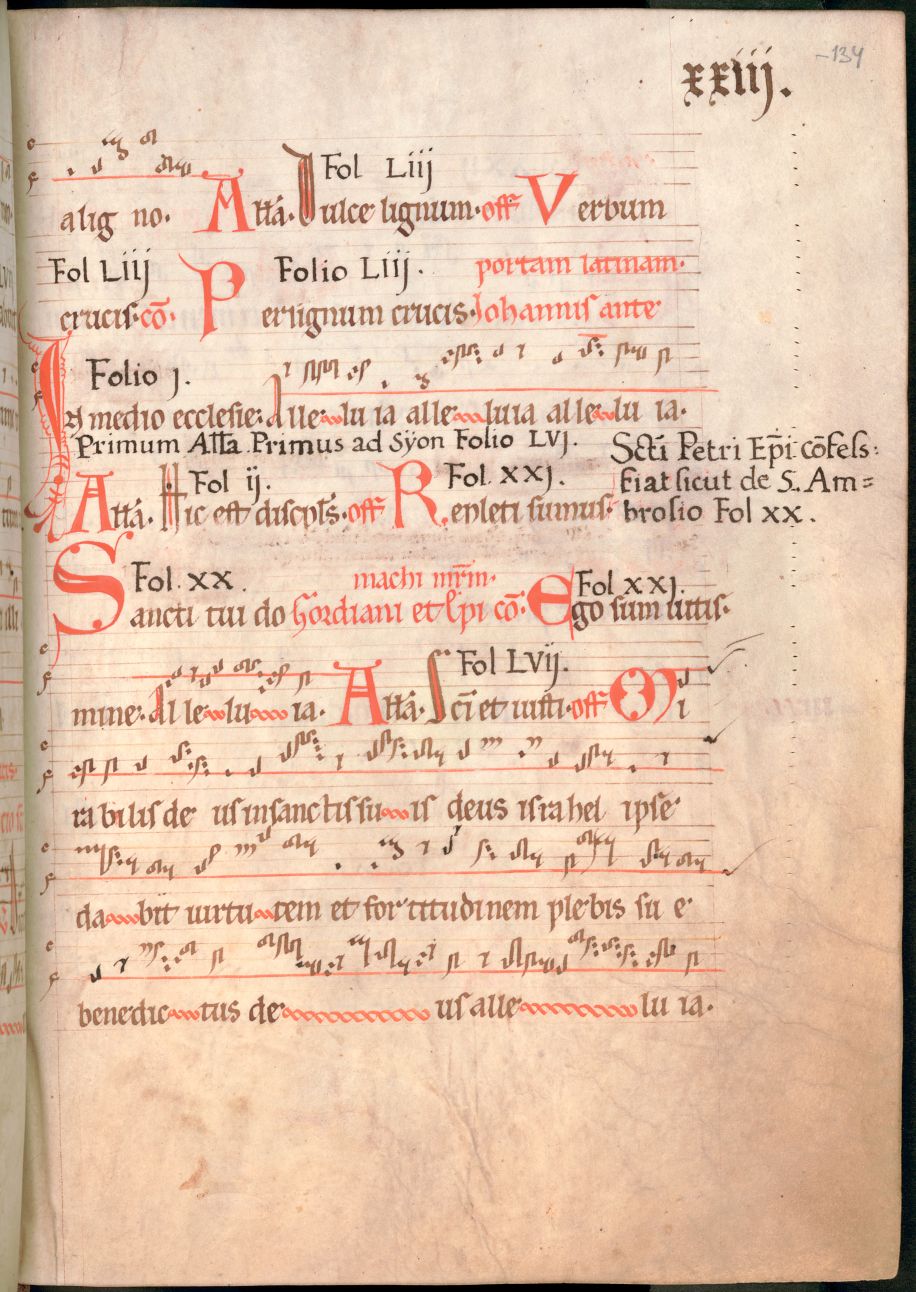 -134
xxiij.
Fol Liij
a lig no. Allā. Dulce lignum. off Verbum
Fol Liij Folio Liij. portam latinam.
crucis. cō. Per signum crucis. Johannis ante
Folio j.
In medio ecclesie. Alle lu ia alle luia alle lu ia.
Primum Alla Primus ad Syon Folio LVJ. Sctī Petri Epī cōfess:
Fol ij. Fol. xxj. fiat sicut de S. Am=
Allā. Hic est discipls. off Repleti sumus. brosio Fol xx.
Fol. xx. machi mrm. Fol xxj.
Sancti tui do Gordiani et Epi cō. Ego sum uitis.
Fol LVij.
mine. Al le lu ia. Allā. Sci et iusti. off Mi
ra bilis de us in sanctis su is deus israhel ipse
da bit uirtu tem et for titudinem ple bis su e
benedic tus de us alle lu ia.